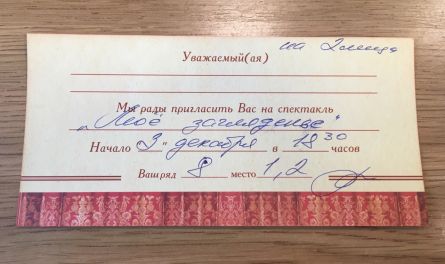 на 2 лица
Уважаемый(ая)
Мы рады пригласить Вас на спектакль
"Моё загляденье"
Начало "3" декабря в 18 30 часов
Ваш ряд 8 место 1,2